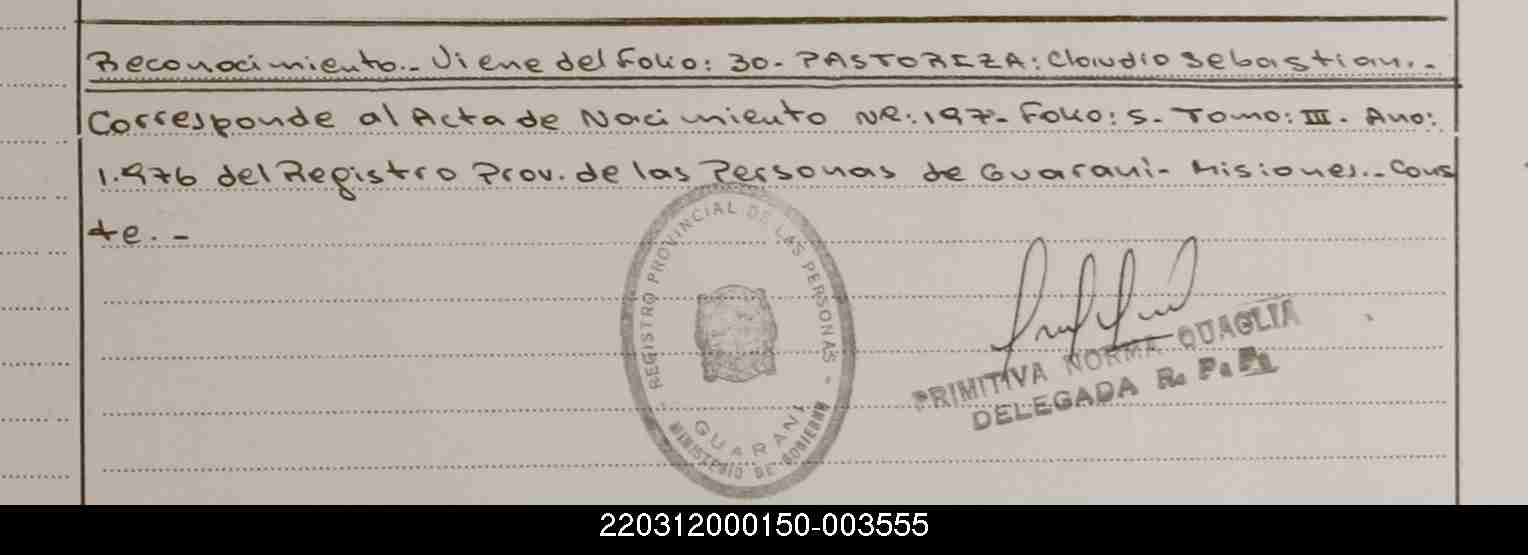 Reconocimiento.- Viene del Folio: 30.- PASTORIZA: Claudio Sebastian.-
Corresponde al Acta de Nacimiento NR: 197.- Folio: 5.- Tomo: III. Ano:
1.976 del Registro Prov. de las Personas de Guarani- Misiones.- Cons
te.-
REGISTRO PROVINCIAL DE LAS PERSONAS -
GUARANI
MINISTERIO DE GOBIERNO
PRIMITIVA NORMA QUAGLIA
DELEGADA R. P. P.
220312000150-003555